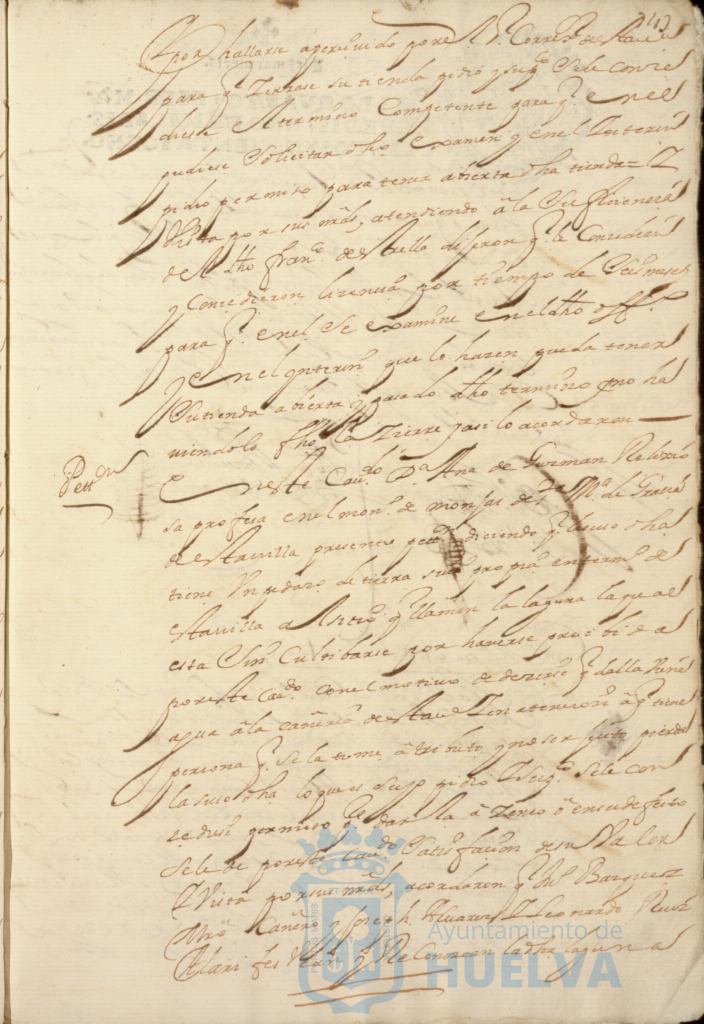 y por hallarse apersevido por el Sr. Correxr. de esta va
para q. Zerrase su tienda pidio y supco. Se le conze
diese el termino Competente para q. en el
pudiese Solicitar dho examen y en el Interin
pidio permiso para tener abierta dha tienda = Y
Vista por sus mrds, atendiendo â la
de el dho Franco. de dijeron q. le Concedian
y Concedieron lizenzia por tiempo de Seis meses
para q. en el Se examine en el dho offo.
y en el ynterin que lo hazen pueda tener
Su tienda abierta y pasado dho termino no ha
viendolo fho la Zierre y asi lo acordaron
Petton
En este Cavdo Da. Ana de Guzman Relixio
sa profesa en el mono. de monjas de Sta. Ma. de Gracia
de esta villa presento petton diciendo q. la suso dha
tiene Un pedazo de tierra suio propio en termo. de
esta villa a el sitio q. llaman la laguna la qual
esta Sin Cultibarse por haverse proibido
por este Cavdo con el motivo de dezirse q. dalla Viene
agua â la cañeria de esta va Y en atencion â q. tiene
persona q. Se la tome â tributo y no ser justo pierda
la suso dha lo que es suyo pidio Y supco. Se le con
zediese permiso pa. dar la â Zenso ô en su defecto
Se le de por este Cavdo Satisfacion de su Valor
Y Vista por sus mrds, acordaron q. Barquez
Mro Cañero Joseph Alvarez Y Leonardo Ruiz
Alarifes Vean y Reconozcan la dha laguna
Ayuntamiento de
HUELVA